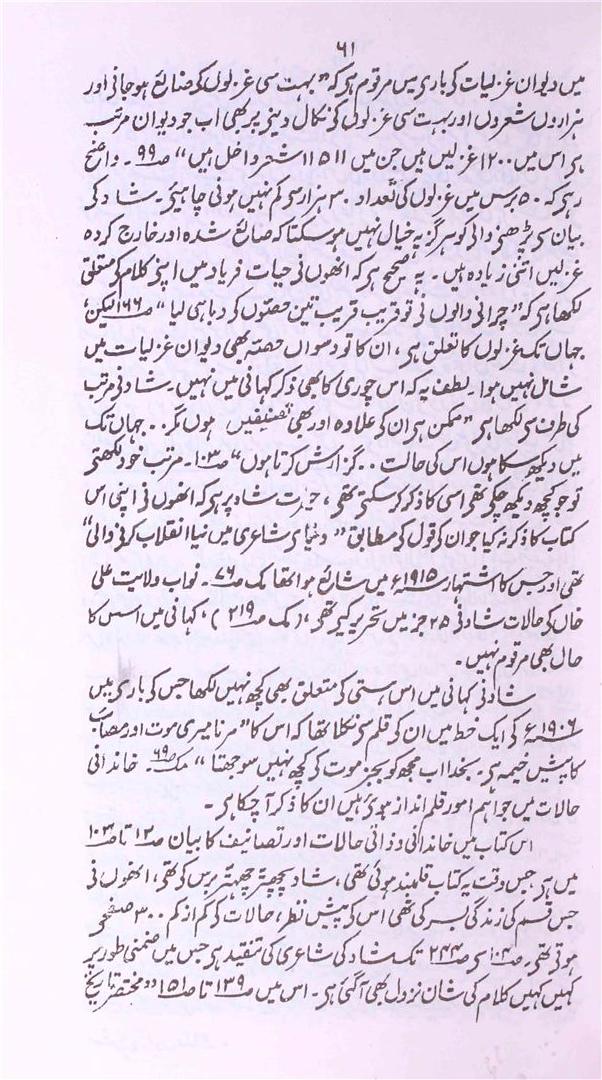 ٦١
میں دیوان غزلیات کی باری میں مرقوم ہی کہ "بہت سی غزلوں کی ضائع ہوجانی اور
ہزاروں شعروں اور بہت سی غزلوں کی نکال دینی پر بھی اب جو دیوان مرتب
ہی اس میں ۱۲۰۰ غزلیں ہیں جن میں ۱۱۵۱۱ شعر داخل ہیں" صـ۹۹ ۔ واضح
رہی کہ ۵۰ برس میں غزلوں کی تعداد ۳۰ ہزار سی کم نہیں ہونی چاہیئی ۔ شاد کی
بیان سی پڑھنی والی کو ہرگز یہ خیال نہیں ہوسکتا کہ ضائع شدہ اور خارج کردہ
غزلیں اتنی زیادہ ہیں ۔ یہ صحیح ہی کہ انھوں نی حیات فریاد میں اپنی کلام کی متعلق
لکھا ہی کہ "چرانی والوں نی تو قریب قریب تین حصّوں کو دبا ہی لیا" صـ۱٦٦ لیکن،
جہاں تک غزلوں کا تعلق ہی، ان کا تو دسواں حصّہ بھی دیوان غزلیات میں
شامل نہیں ہوا ۔ لطف یہ کہ اس چوری کا بھی ذکر کہانی میں نہیں ۔ شاد نی مرتب
کی طرف سی لکھا ہی "ممکن ہی ان کی علاوہ اور بھی تصنیفیں ہوں مگر.. جہاں تک
میں دیکھ سکا ہوں اس کی حالت .. گزارش کرتا ہوں" صـ۱۰۳ ۔ مرتب خود لکھتی
تو جو کچھ دیکھ چکی تھی اسی کا ذکر کرسکتی تھی، حیرت شاد پر ہی کہ انھوں نی اپنی اس
کتاب کا ذکر نہ کیا جو ان کی قول کی مطابق "دنیای شاعری میں نیا انقلاب کرنی والی"
تھی اور جس کا اشتہار ۱۹۱۵ء میں شائع ہوا تھا مک صـ۷٦ ۔ نواب ولایت علی
خاں کی حالات شاد نی ۲۵ جز میں تحریر کیی تھی، (مک صـ۲۱۹)، کہانی میں اس کا
حال بھی مرقوم نہیں ۔
شاد نی کہانی میں اس ہستی کی متعلق بھی کچھ نہیں لکھا جس کی باری میں
۱۹۰٦ء کی ایک خط میں ان کی قلم سی نکلا تھا کہ اس کا "مرنا میری موت اور مصائب
کا پیش خیمہ ہی ۔ بخدا اب مجھ کو بجز موت کی کچھ نہیں سوجھتا" مک صـ٦۹ ۔ خاندانی
حالات میں جو اہم امور قلم انداز ہوئی ہیں ان کا ذکر آچکا ہی ۔
اس کتاب میں خاندانی و ذاتی حالات اور تصانیف کا بیان صـ۱۲ تا صـ۱۰۳
میں ہی جس وقت یہ کتاب قلمبند ہوئی تھی، شاد پچھتر چھہتر برس کی تھی، انھوں نی
جس قسم کی زندگی بسر کی تھی اس کی پیش نظر، حالات کی کم از کم ۳۰۰ صفحی
ہوتی تھی ۔ صـ۱۰۴ سی صـ۲۴۴ تک شاد کی شاعری کی تنقید ہی جس میں ضمنی طور پر
کہیں کہیں کلام کی شان نزول بھی آگئی ہی ۔ اس میں صـ۱۳۹ تا صـ۱۵۱ "مختصر تاریخ